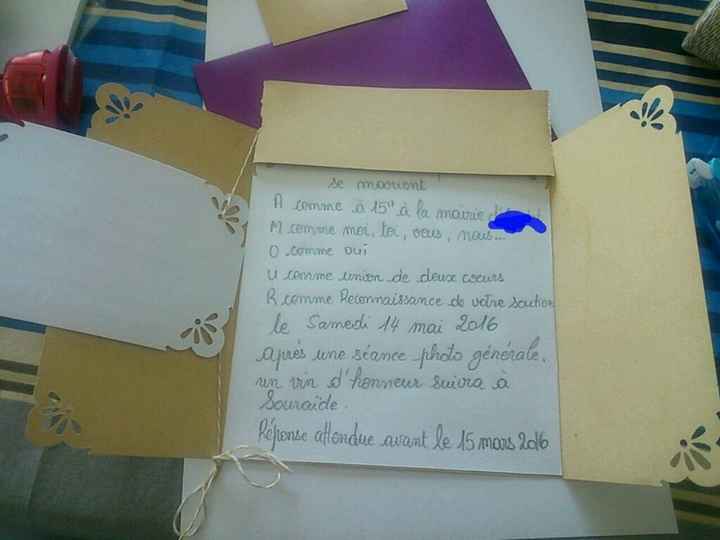 se marient
A comme à 15h à la mairie
M comme moi, toi, vous, nous...
O comme oui
U comme union de deux coeurs
R comme Reconnaissance de votre soutien
le Samedi 14 mai 2016
après une séance photo générale,
un vin d'honneur suivra à
Souraïde.
Réponse attendue avant le 15 mars 2016